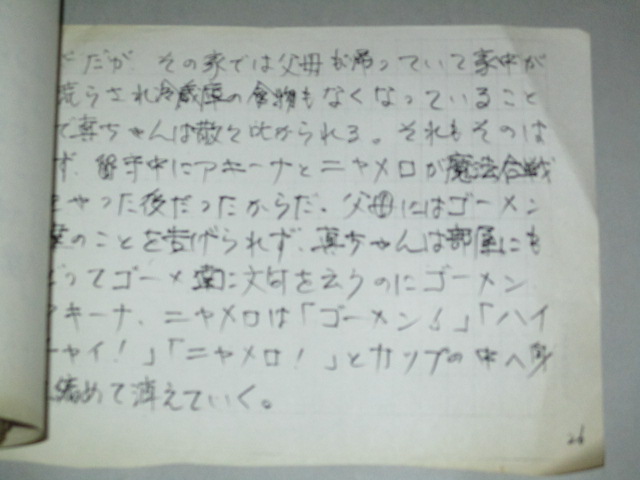 だが、その家では父母が帰っていて家中が
荒らされ冷蔵庫の食物もなくなっていること
で真ちゃんは散々叱かられる。それもそのは
ず、留守中にアキーナとニャメロが魔法合戦
をやった後だったからだ。父母にはゴーメン
のことを告げられず、真ちゃんは部屋にも
ってゴーメン に文句を云うのにゴーメン、
アキーナ、ニャメロは「ゴーメン!」「ハイ
チャイ!」「ニャメロ!」とカップの中へ
縮めて消えていく。
26